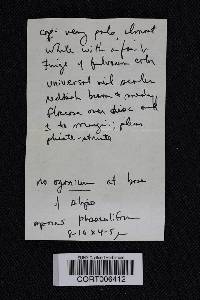 cap: very pale, almost
white with a faint
tinge of fulvous color
universal veil scales
reddish brown &
floccose over disc and
± to margin; plus
plicate-striate
no ozonium at base
of stipe
spores
8-10 x 4-5 µ
CORT006412